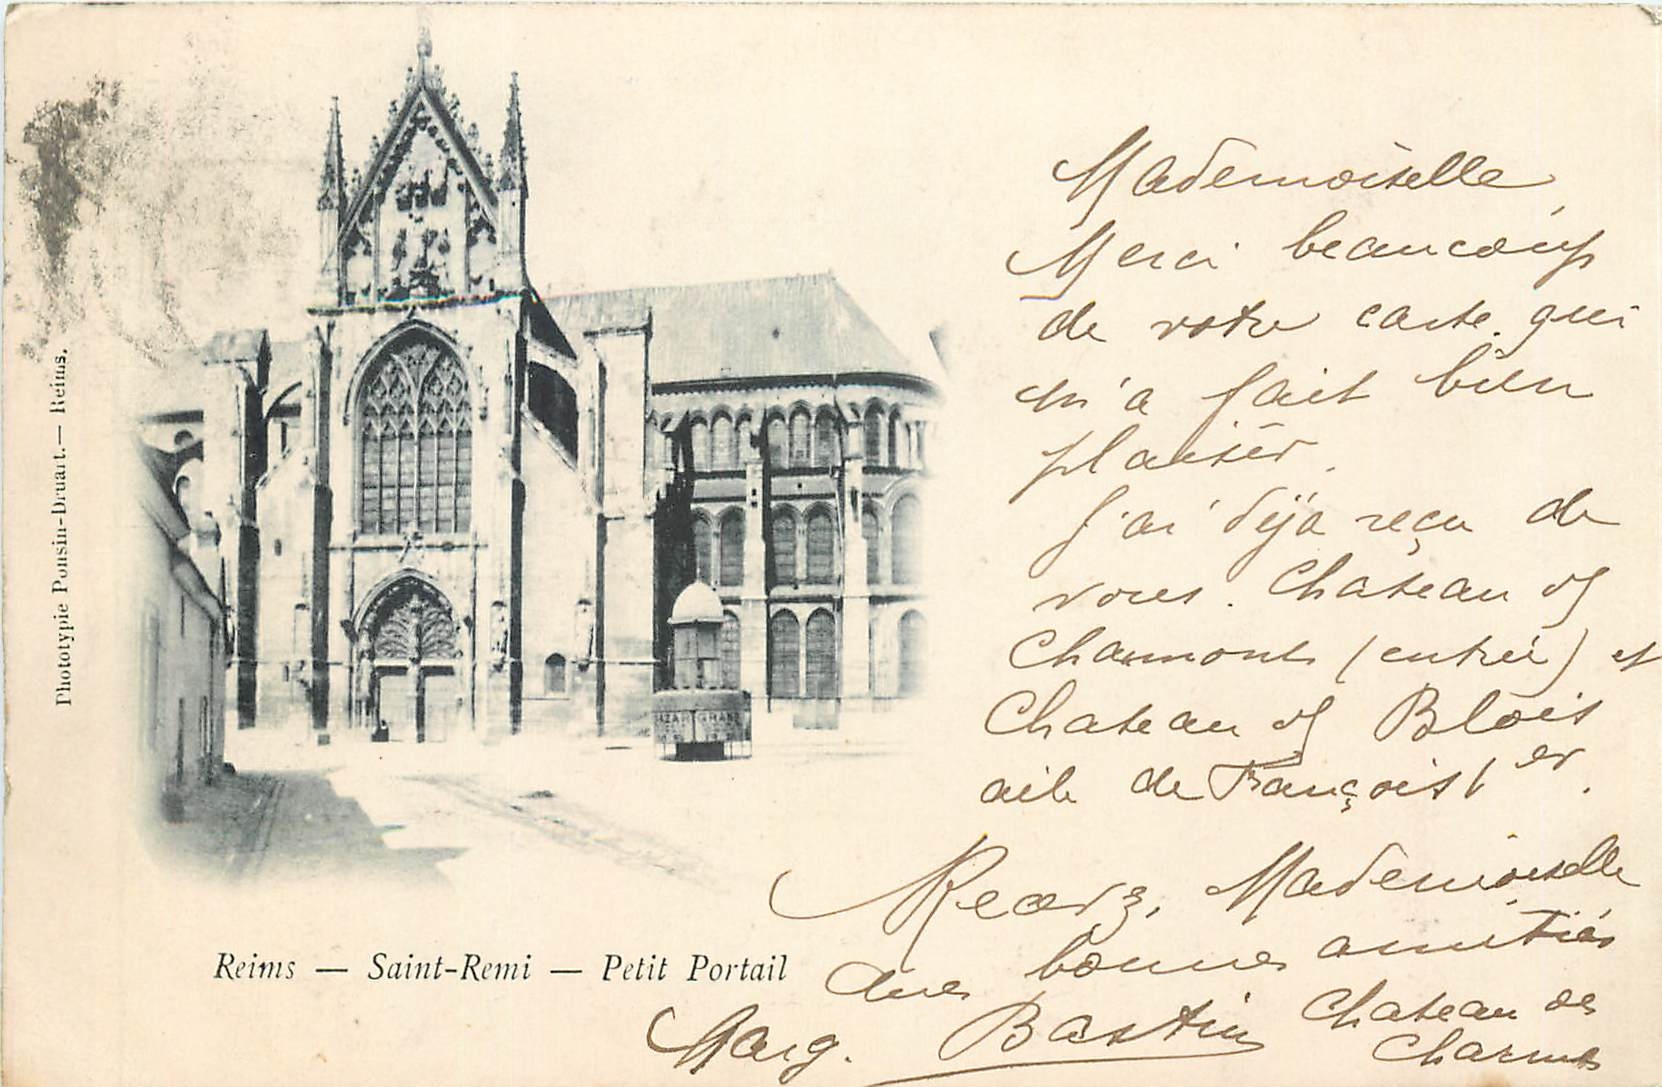 Phototypie Ponsin-Druart. — Reims.
BAZAR GRAND
Reims — Saint-Remi — Petit Portail
Mademoiselle,
Merci beaucoup
de votre carte qui
m'a fait bien
plaisir.
J'ai déjà reçu de
vous. Chateau de
Chaumont (entrée) et
Chateau de Blois
aile de François 1er.
Recevez, Mademoiselle
mes bonnes amitiés
Marg. Bastin Chateau des